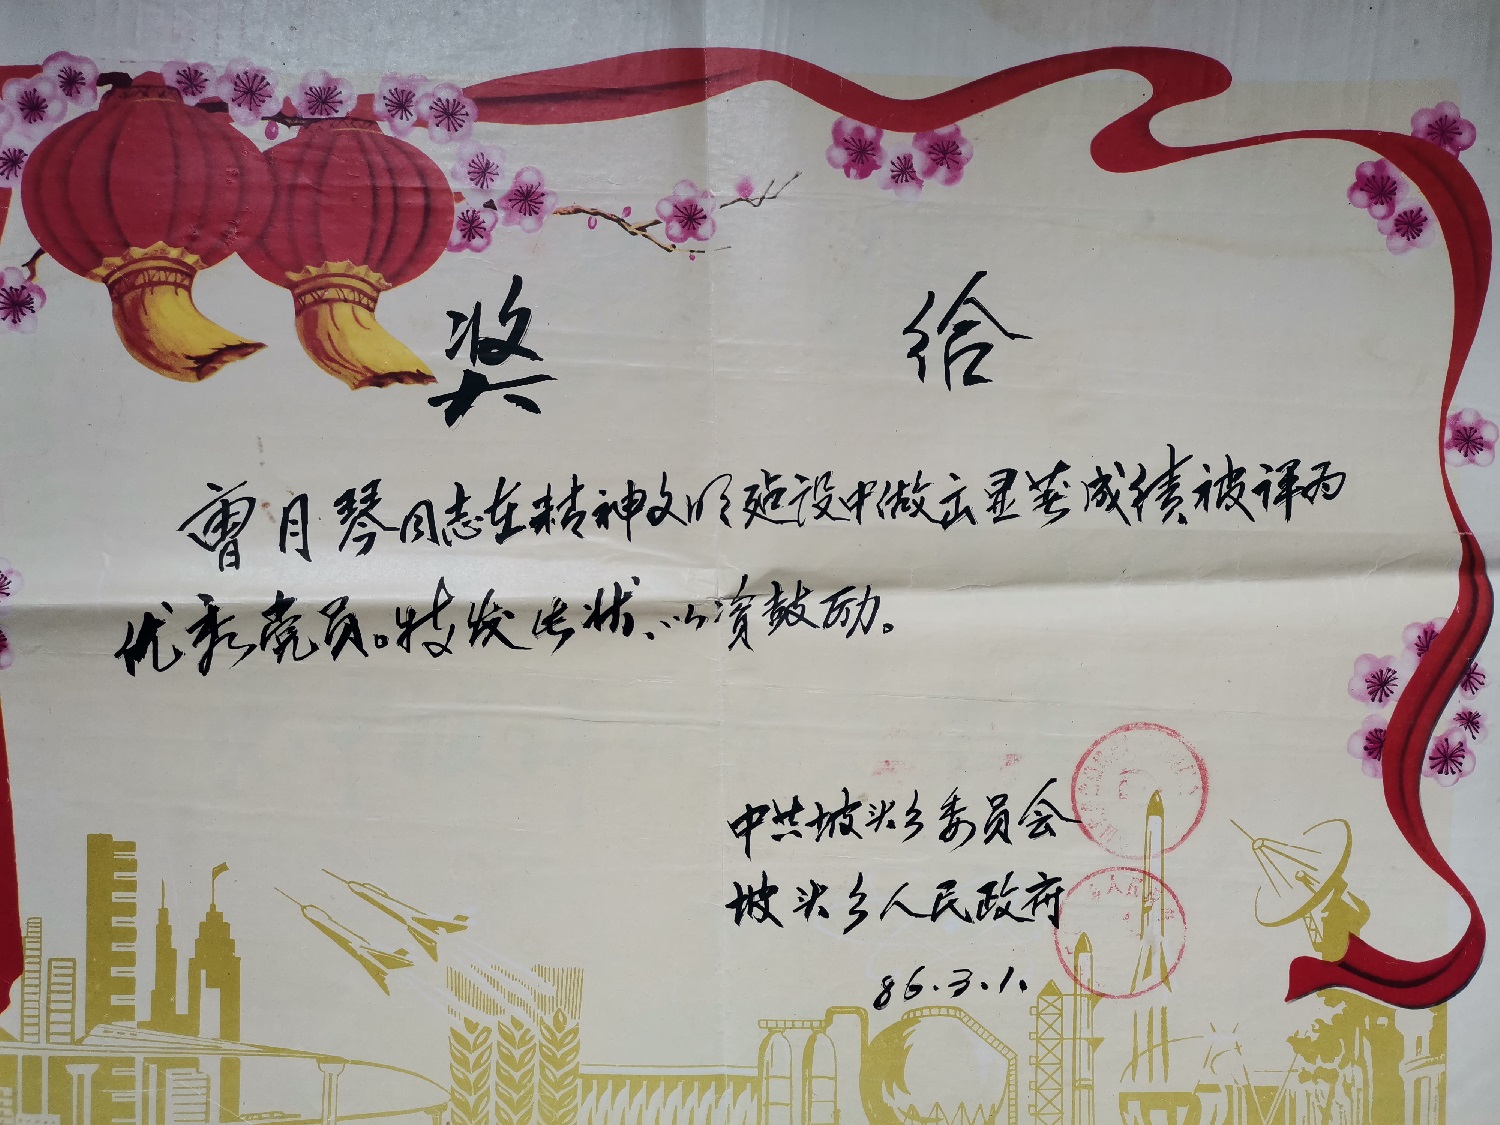 奖 给
曹月琴同志在精神文明建设中做出显著成绩被评为
优秀党员。特发此状、以资鼓励。
中共坡头乡委员会
坡头乡人民政府
86.3.1.